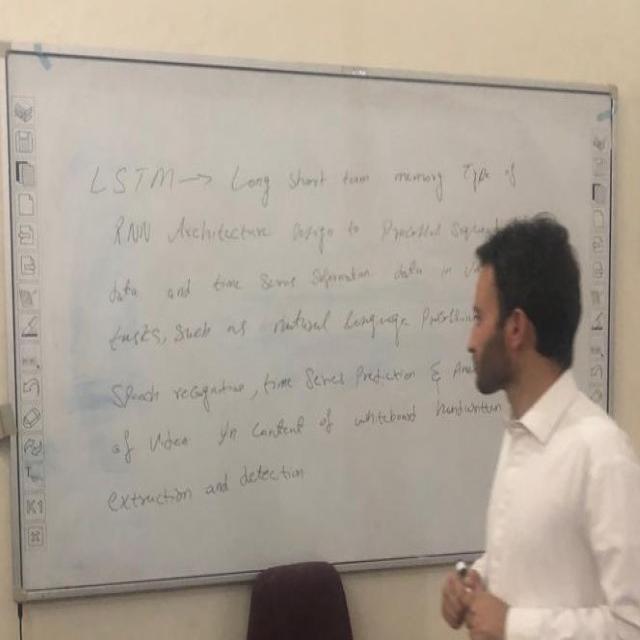 LSTM → Long Short term memory Type of
RNN Architecture Design to Processed
data and time Serise data in
tasks, such as natural Language
Speech recognitive, time Series Prediction &
of Video In Content of whiteboard handwritten
extraction and detection
K1